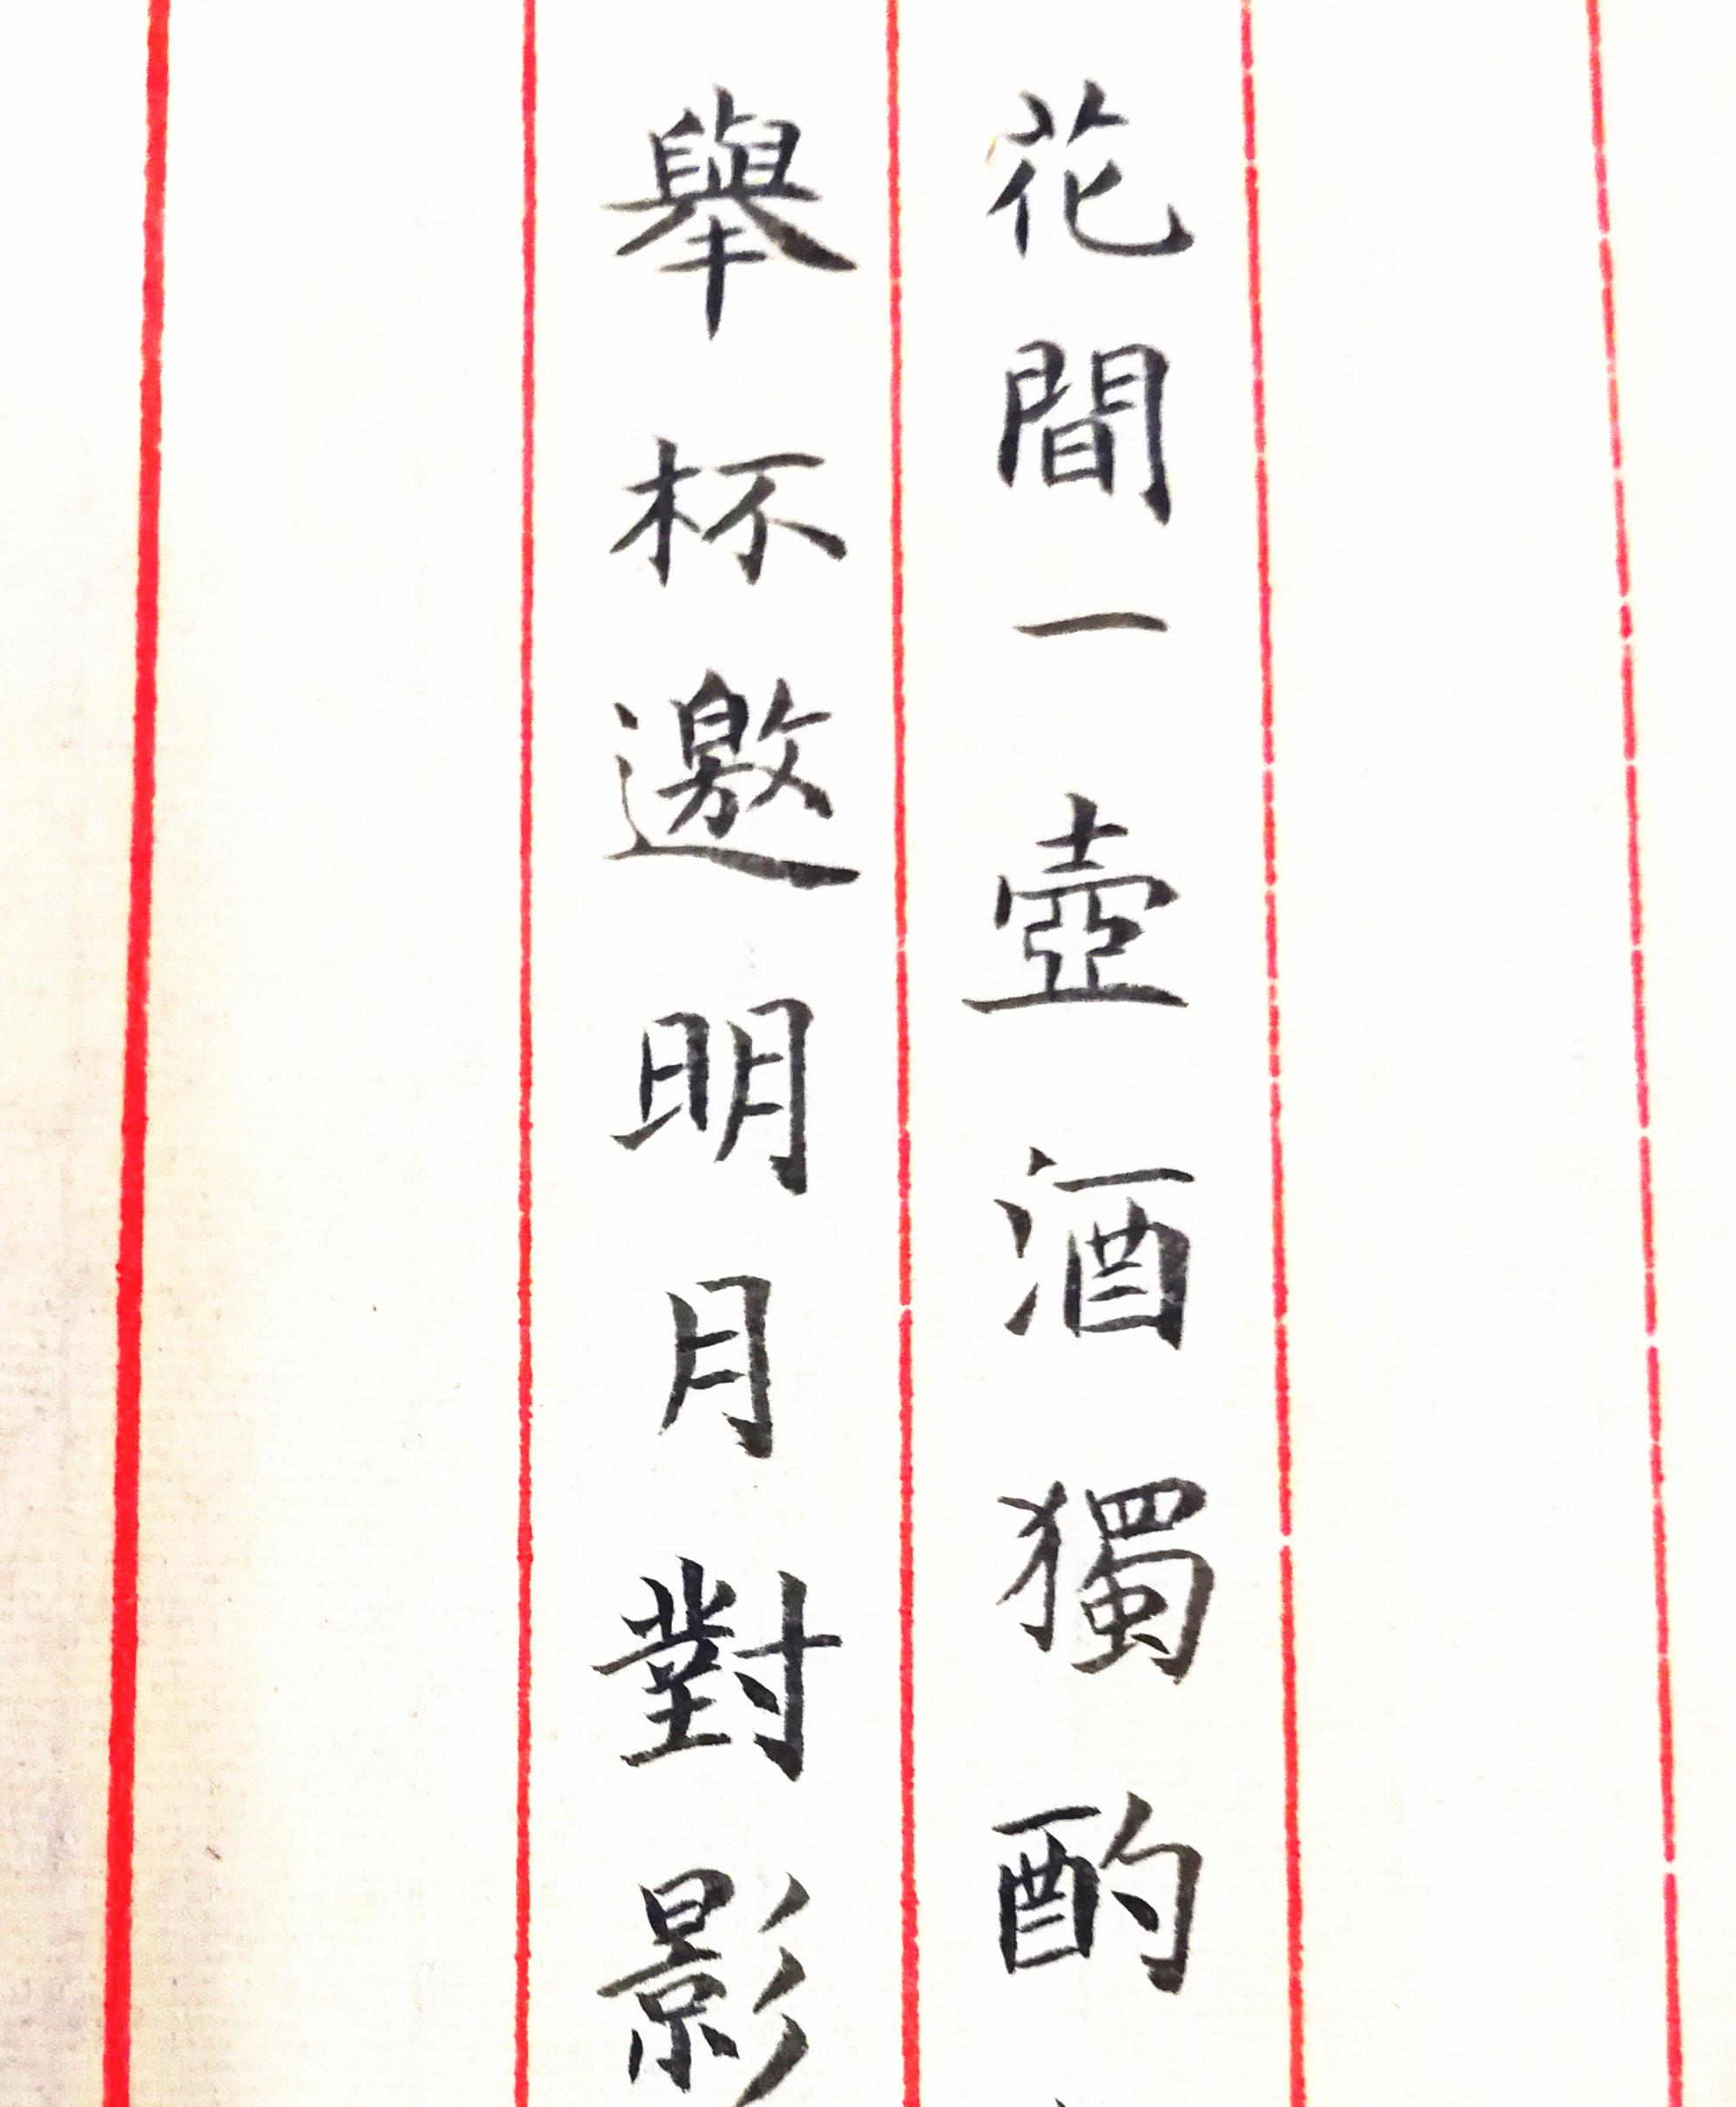 花間一壺酒獨酌
舉杯邀明月對影